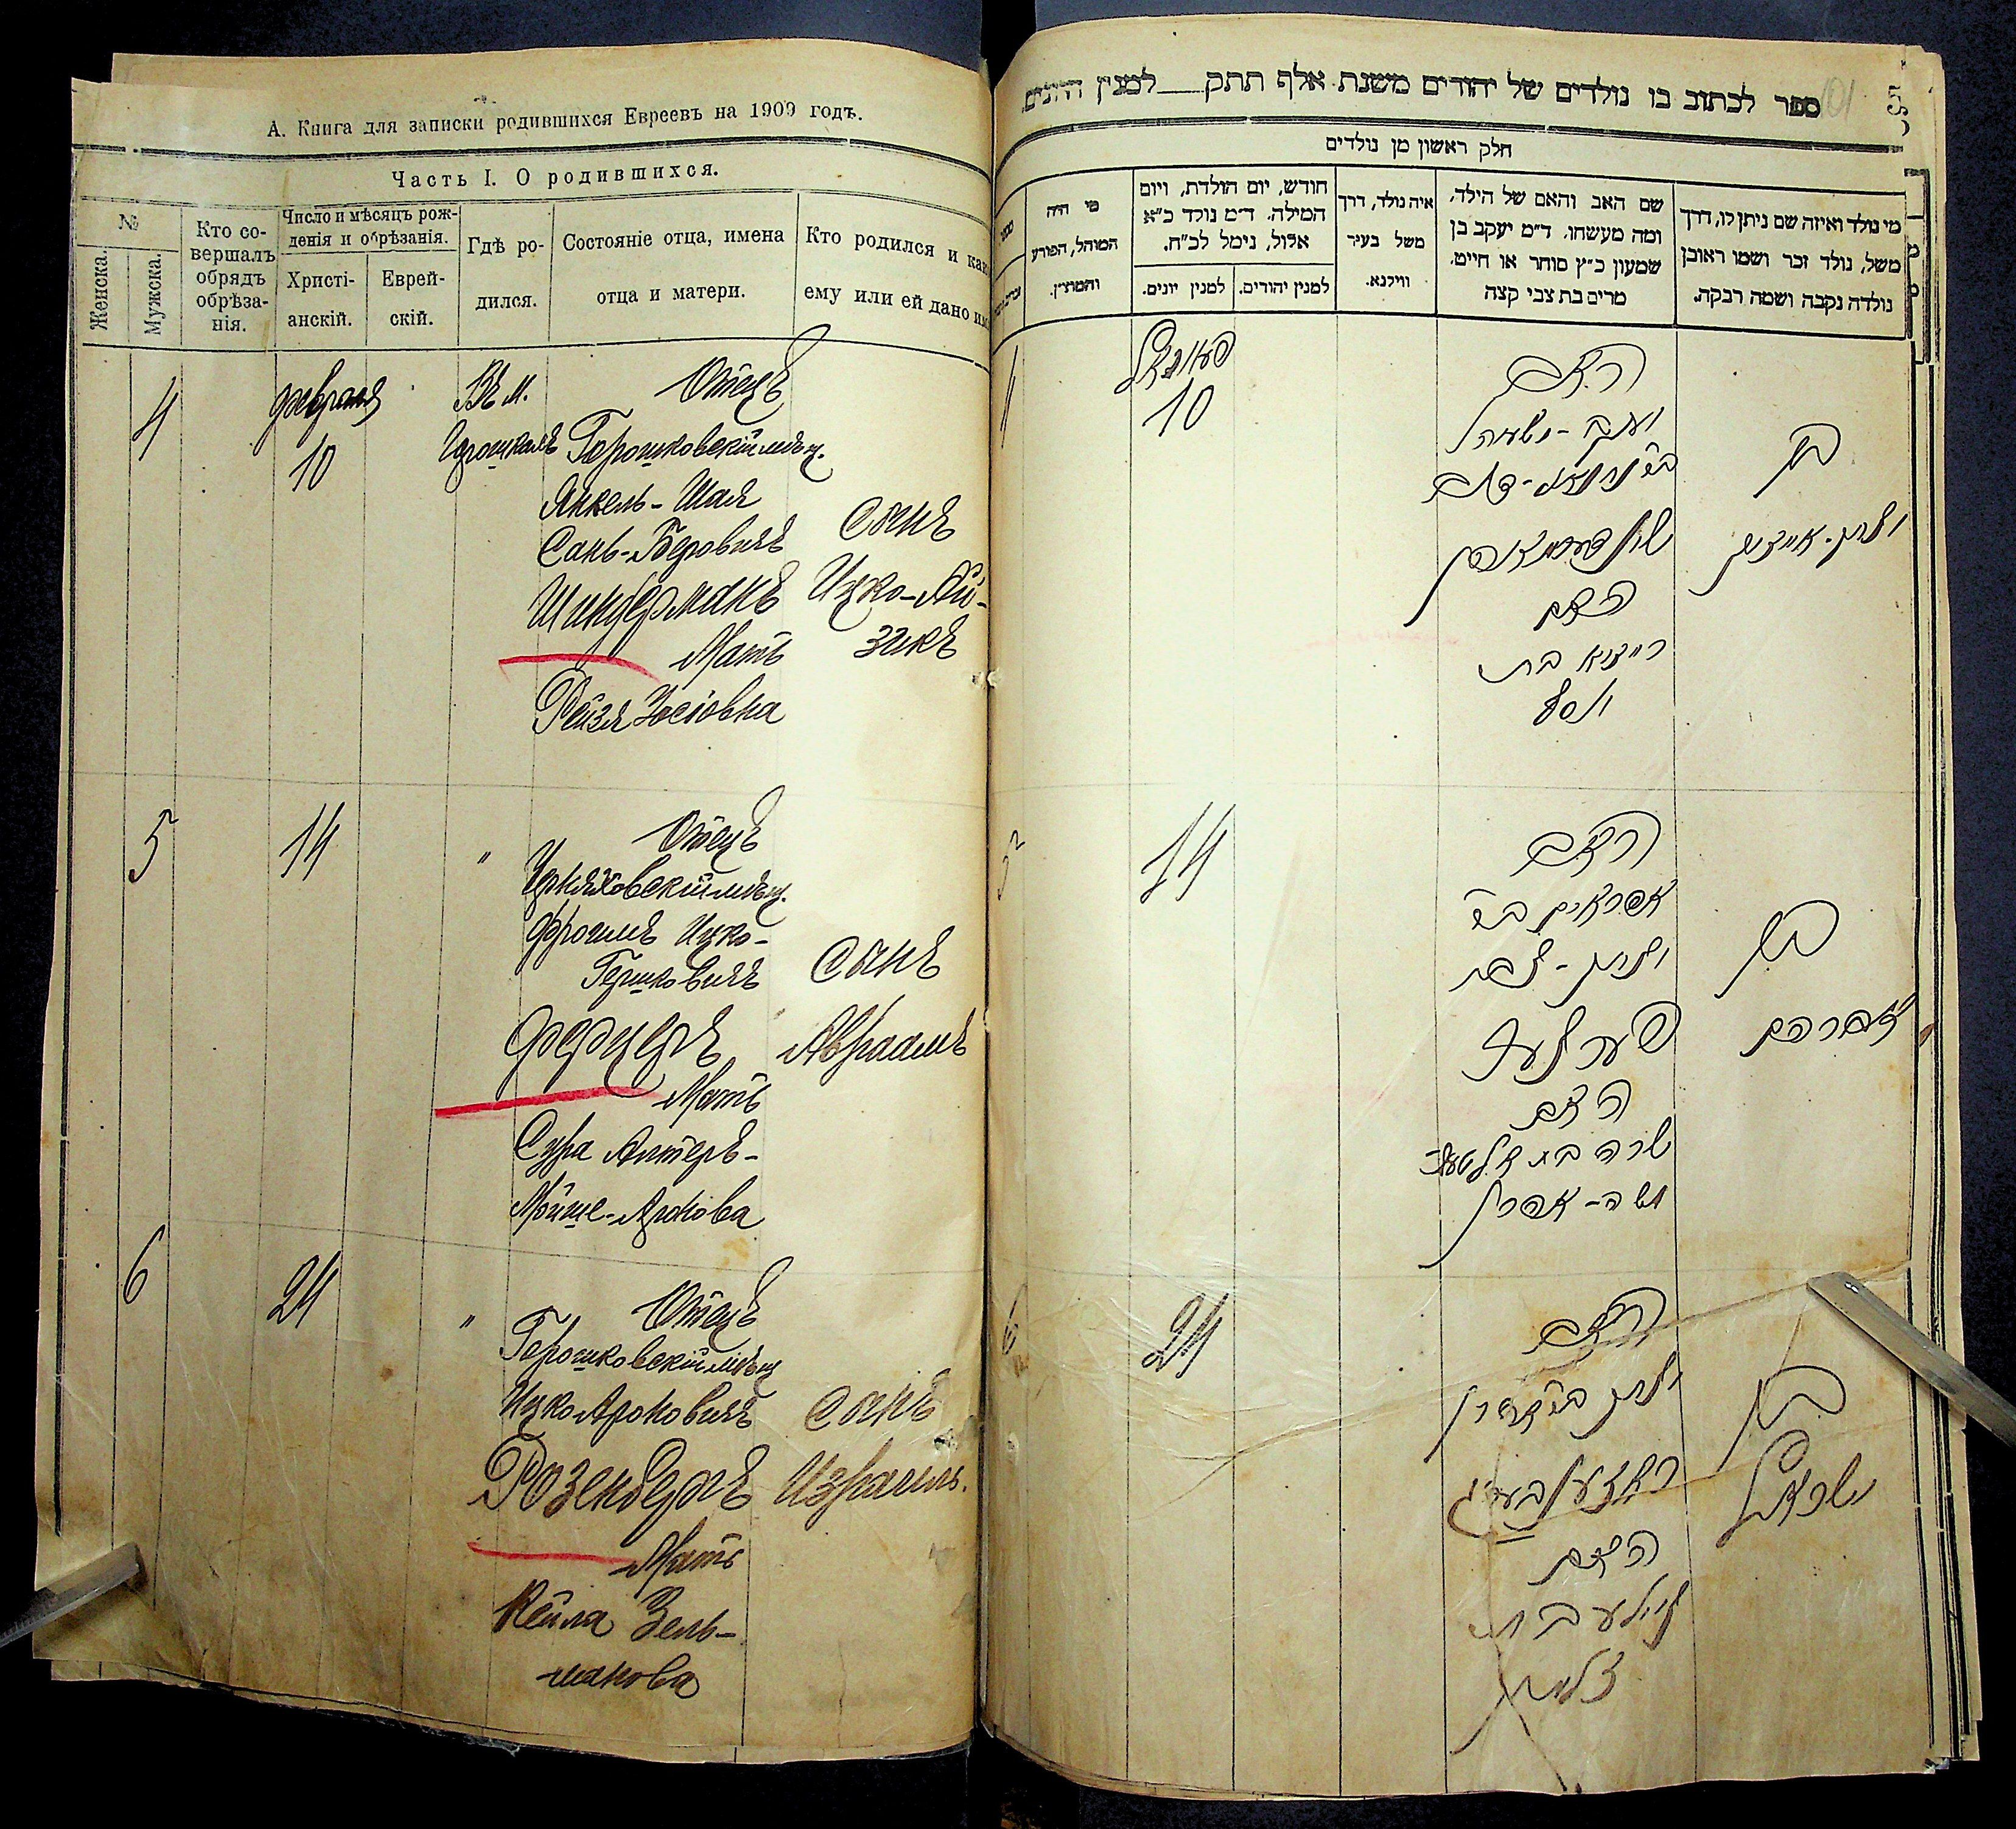 А. Книга для записки родившихся Евреевъ на 1909 годъ.
Часть I. О родившихся.
№
Женска.
Мужска.
Кто со-
вершалъ
обрядъ
обрѣза-
нія.
Число и мѣсяцъ рож-
денія и обрѣзанія.
Христі-
анскій.
Еврей-
скій.
Гдѣ ро-
дился.
Состояніе отца, имена
отца и матери.
Кто родился и как
ему или ей дано им
4
февраля
10
Въ м.
Отецъ
Горошковскій мѣщ.
Янкель-Шая
Шиндерманъ
Мать
Рейзя Іосіовна
Сынъ
Ицко-Ай-
зикъ
5
14
"
Отецъ
Черняховскій мѣщ.
Фроимъ Ицко-
Гершковичъ
Ферцеръ
Мать
Сура Алтеръ-
Мойше-Аронова
Сынъ
Авраамъ
6
24
"
Отецъ
Горошковскій мѣщ
Ицко Ароновичъ
Розенбергъ
Мать
Кейла Зель-
манова
Сынъ
Израиль.
ספר לכתוב בו נולדים של יהודים משנת אלף תתק למנין היונים
101
חלק ראשון מן נולדים
מי נולד ואיזה שם ניתן לו, דרך
משל, נולד זכר ושמו ראובן
נולדה נקבה ושמה רבקה.
שם האב והאם של הילד,
ומה מעשהו. ד״מ יעקב בן
שמעון כ״ץ סוחר או חייט.
מרים בת צבי קצה
איה נולד, דרך
משל בעיר
ווילנא.
חודש, יום הולדת, ויום
המילה. ד״מ נולד כ״א
אלול, נימל לכ״ח.
למנין יהודים.
למנין יונים.
מי היה
המוהל, הפורע
והמוצץ.
10
האב
בן
יצחק-אייזיק
האם
רייזיא בת
יוסף
14
האב
אפראים ב״ר
יצחק-
בן
אברהם
האם
שרה בת אלטער
משה-אהרן
24
האב
יצחק ב״ר אהרן
ראזענבערג
בן
ישראל
האם
קיילע בת
זלמן